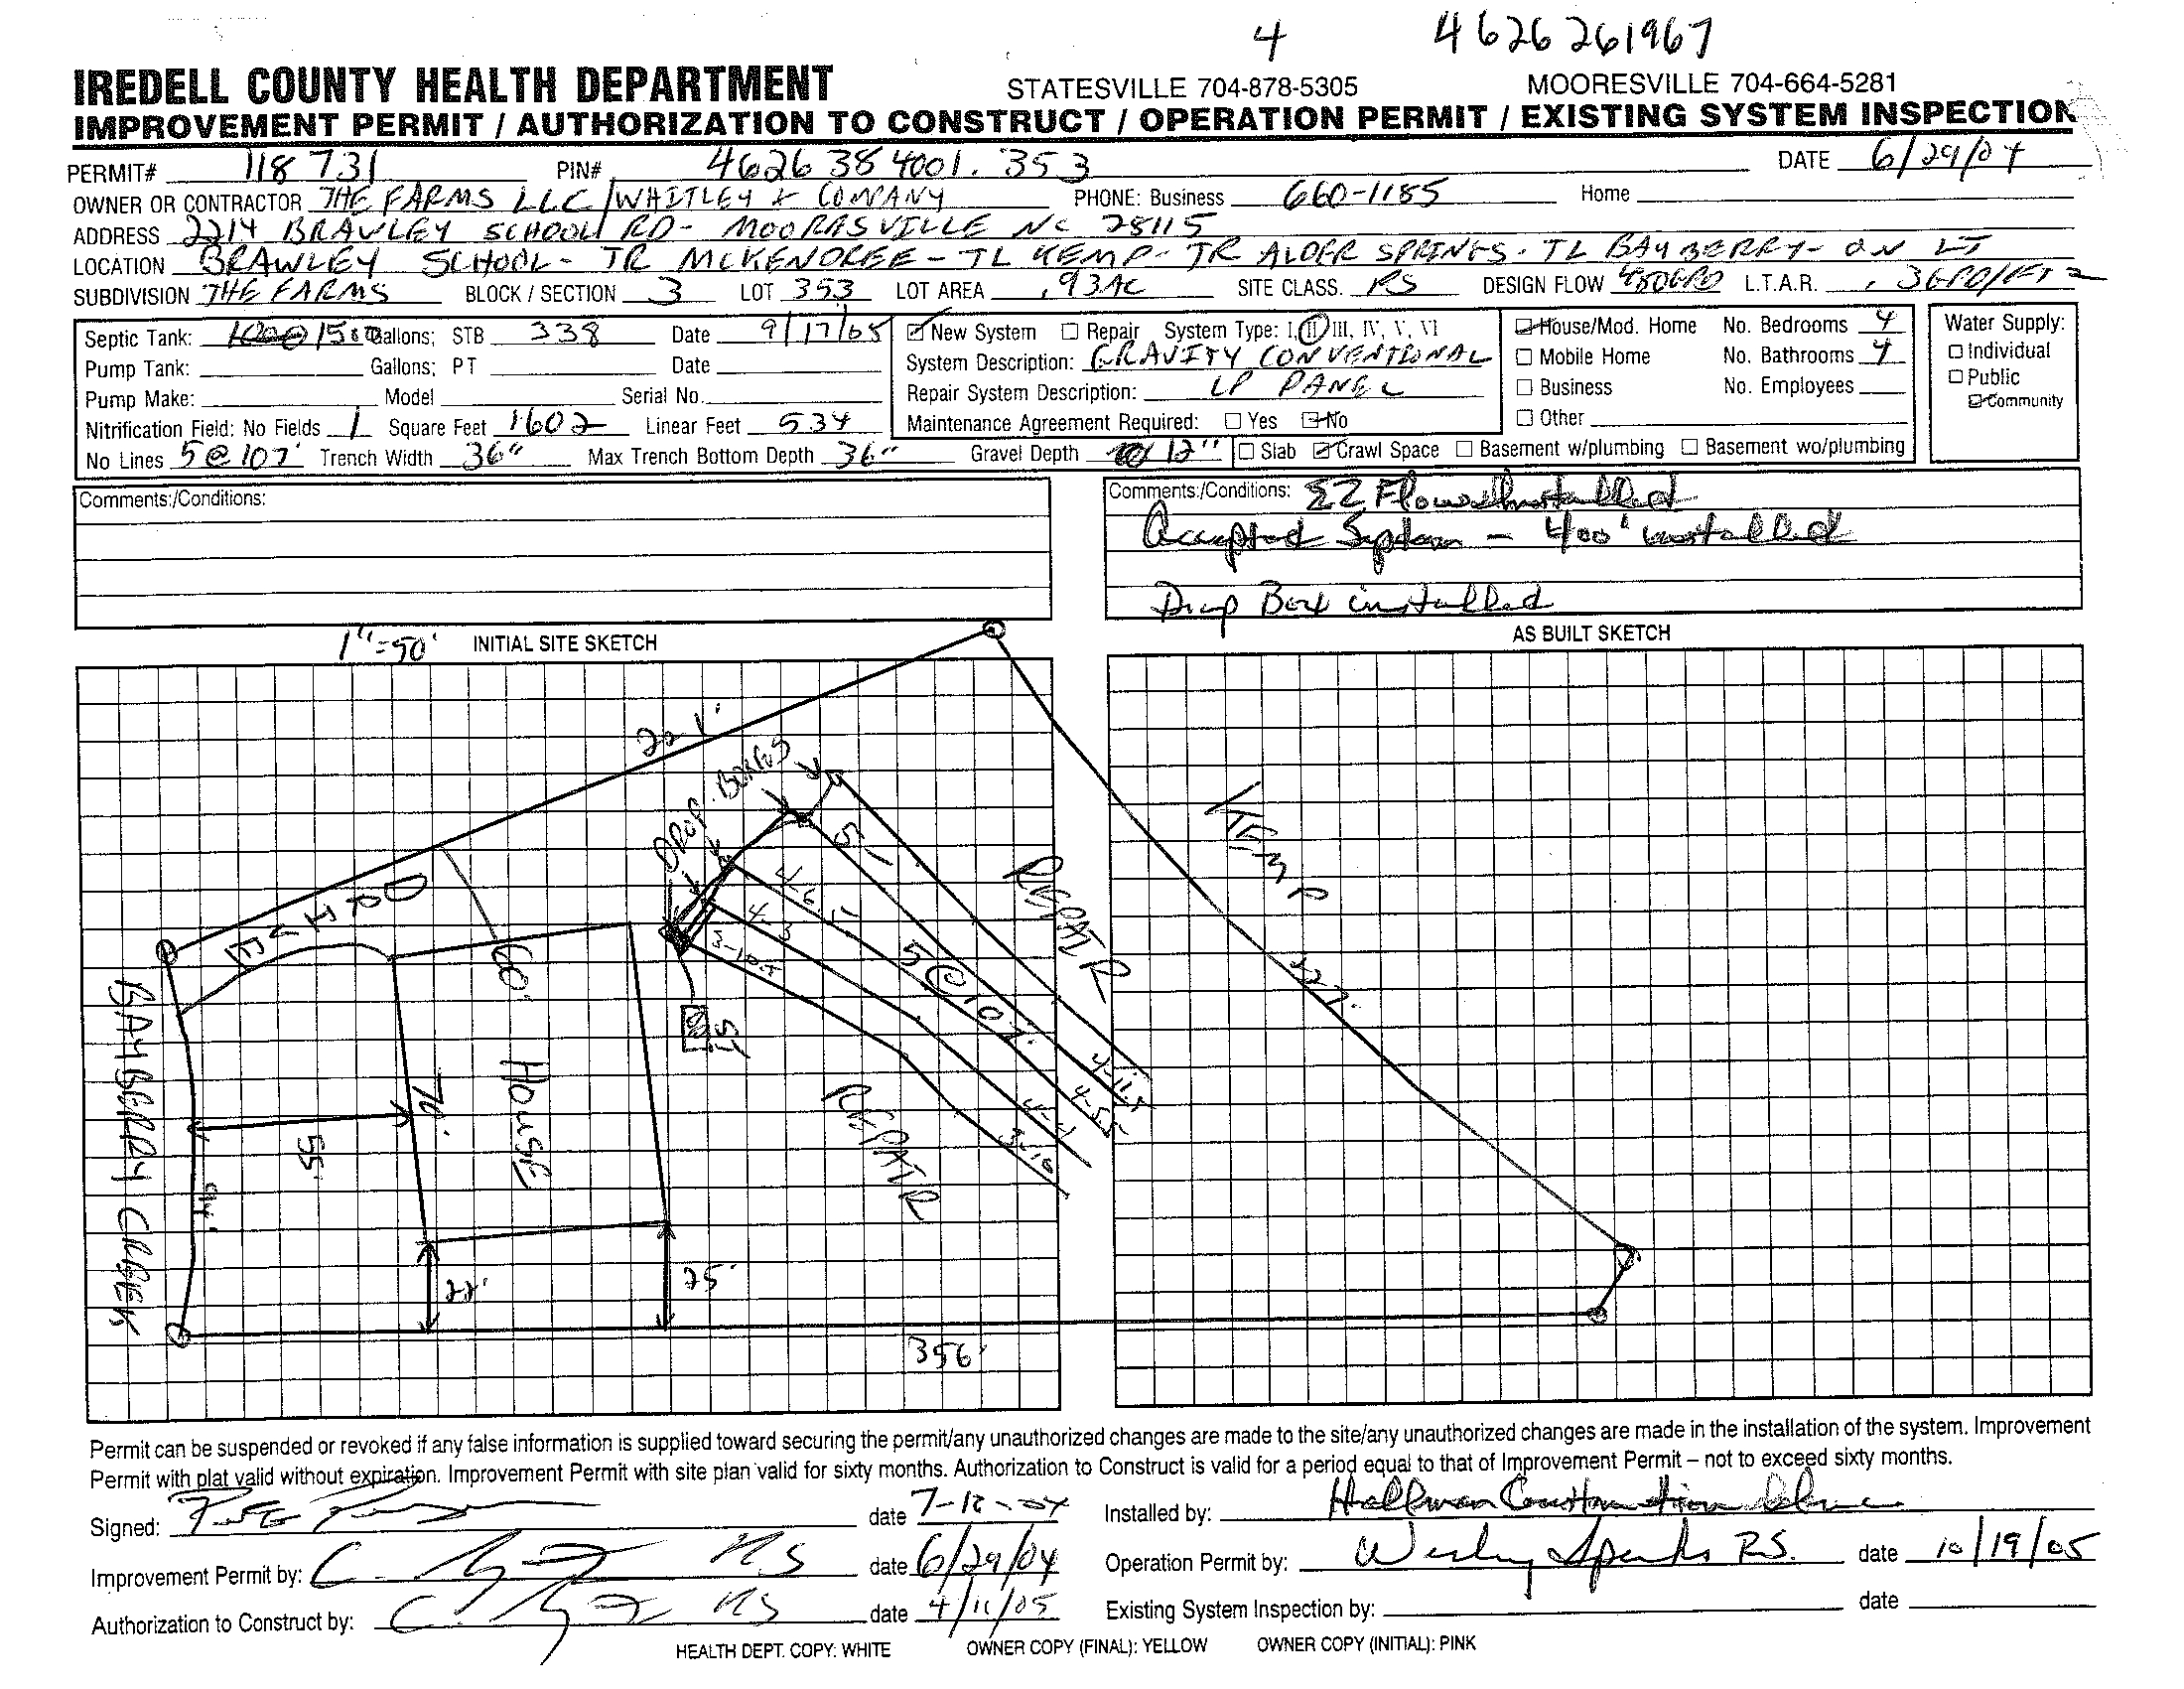 4 4626261967
IREDELL COUNTY HEALTH DEPARTMENT STATESVILLE 704-878-5305 MOORESVILLE 704-664-5281
IMPROVEMENT PERMIT / AUTHORIZATION TO CONSTRUCT / OPERATION PERMIT / EXISTING SYSTEM INSPECTION
PERMIT# 118731 PIN# 4626384001.353 DATE 6/29/04
OWNER OR CONTRACTOR THE FARMS LLC/WHITLEY & COMPANY PHONE: Business 660-1185 Home
ADDRESS 2214 BRAWLEY SCHOOL RD- MOORESVILLE NC 28115
LOCATION BRAWLEY SCHOOL- TR MCKENDREE- TL KEMP- TR ALDER SPRINGS- TL BAYBERRY- ON LT
SUBDIVISION THE FARMS BLOCK / SECTION 3 LOT 353 LOT AREA .93AC SITE CLASS. PS DESIGN FLOW 480GPD L.T.A.R. .3GPD/FT2
Septic Tank: 1500 Gallons; STB 338 Date 9/17/05 New System Repair System Type: I, II, III, IV, V, VI House/Mod. Home No. Bedrooms 4 Water Supply:
Pump Tank: Gallons; PT Date System Description: GRAVITY CONVENTIONAL Mobile Home No. Bathrooms 4 Individual
Pump Make: Model Serial No. Repair System Description: LP PANEL Business No. Employees Public
Nitrification Field: No Fields 1 Square Feet 1602 Linear Feet 534 Maintenance Agreement Required: Yes No Other Community
No Lines 5@107' Trench Width 36" Max Trench Bottom Depth 36" Gravel Depth 12" Slab Crawl Space Basement w/plumbing Basement wo/plumbing
Comments:/Conditions:
Comments:/Conditions: EZ Flow Installed
Accepted System - 400' installed
Drop Box installed
1"=50' INITIAL SITE SKETCH AS BUILT SKETCH
221'
DROP BOXES
KEMP
REPAIR
5-1
4-6.5
4-3
3-10.5
5@107'
327'
60'
ST
BAYBERRY CREEK
HOUSE
76'
55'
94'
REPAIR
4-11.5
4-5.5
4-4
3-10
22'
25'
356'
Permit can be suspended or revoked if any false information is supplied toward securing the permit/any unauthorized changes are made to the site/any unauthorized changes are made in the installation of the system. Improvement
Permit with plat valid without expiration. Improvement Permit with site plan valid for sixty months. Authorization to Construct is valid for a period equal to that of Improvement Permit – not to exceed sixty months.
Signed: date 7-12-04 Installed by: Hallman Construction
Improvement Permit by: RS date 6/29/04 Operation Permit by: Wesley Sparks R.S. date 10/19/05
Authorization to Construct by: RS date 4/11/05 Existing System Inspection by: date
HEALTH DEPT. COPY: WHITE OWNER COPY (FINAL): YELLOW OWNER COPY (INITIAL): PINK